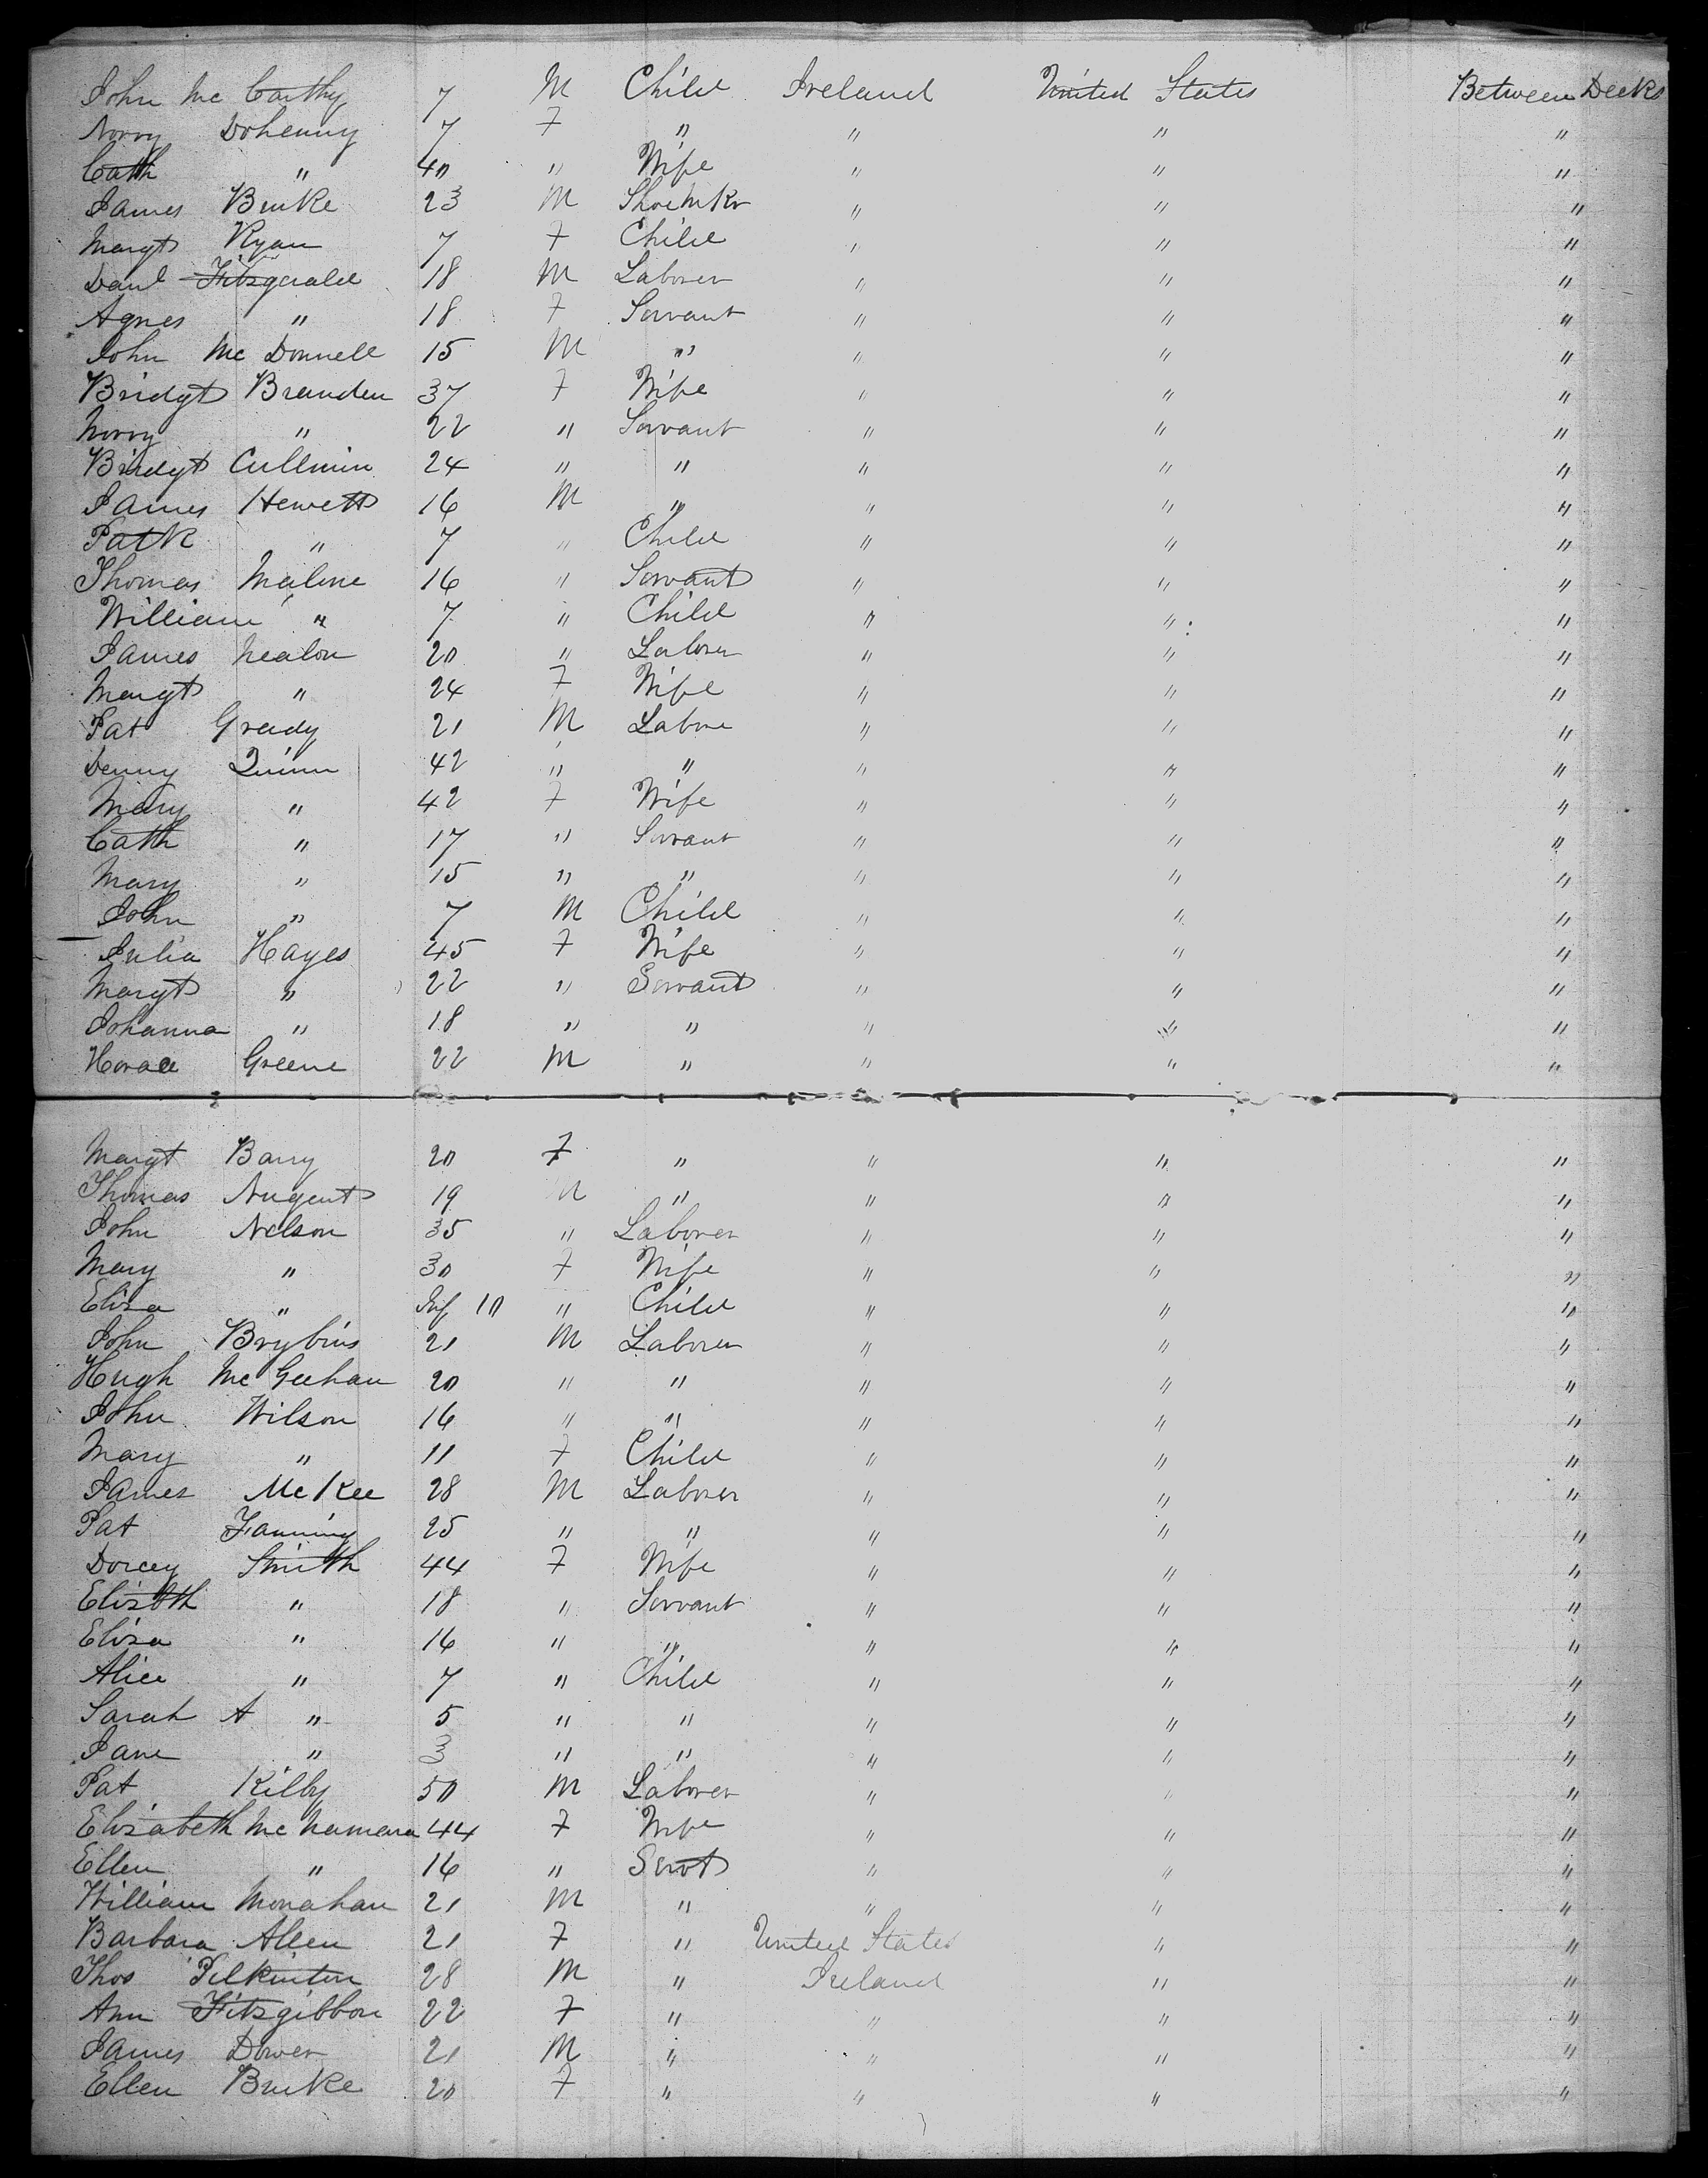 John Mc Carthy 7 M Child Ireland United States Between Decks
Norry Dohenny 7 F " " " "
Cath " 40 " Wife " " "
James Burke 23 M Shoemkr " " "
Margt Ryan 7 F Child " " "
Danl Fitzgerald 18 M Laborer " " "
Agnes " 18 F Servant " " "
John Mc Donnell 15 M " " " "
Bridgt Branden 37 F Wife " " "
Norry " 22 " Servant " " "
Bridgt Cullinin 24 " " " " "
James Hewett 16 M " " " "
Patk " 7 " Child " " "
Thomas Malone 16 " Servant " " "
William " 7 " Child " " "
James Nealon 20 " Laborer " " "
Margt " 24 F Wife " " "
Pat Grady 21 M Labore " " "
Denny Quinn 42 " " " " "
Mary " 42 F Wife " " "
Cath " 17 " Servant " " "
Mary " 15 " " " " "
John " 7 M Child " " "
Julia Hayes 45 F Wife " " "
Margt " 22 " Servant " " "
Johanna " 18 " " " " "
Horace Greene 22 M " " " "
Margt Barry 20 F " " " "
Thomas Nugent 19 M " " " "
John Nelson 35 " Laborer " " "
Mary " 30 F Wife " " "
Eliza " Inf 10 " Child " " "
John 21 M Laborer " " "
Hugh Mc Geehan 20 " " " " "
John Wilson 16 " " " " "
Mary " 11 F Child " " "
James McKee 28 M Laborer " " "
Pat Fanning 25 " " " " "
Dorcey Smith 44 F Wife " " "
Elizbth " 18 " Servant " " "
Eliza " 16 " " " " "
Alice " 7 " Child " " "
Sarah A " 5 " " " " "
Jane " 3 " " " " "
Pat Kilby 50 M Laborer " " "
Elizabeth Mc Namara 44 F Wife " " "
Ellen " 16 " Servt " " "
William Monahan 21 M " " " "
Barbara Allen 21 F " United States " "
Thos Pilkinton 28 M " Ireland " "
Ann Fitzgibbon 22 F " " " "
James Dower 21 M " " " "
Ellen Burke 20 F " " " "